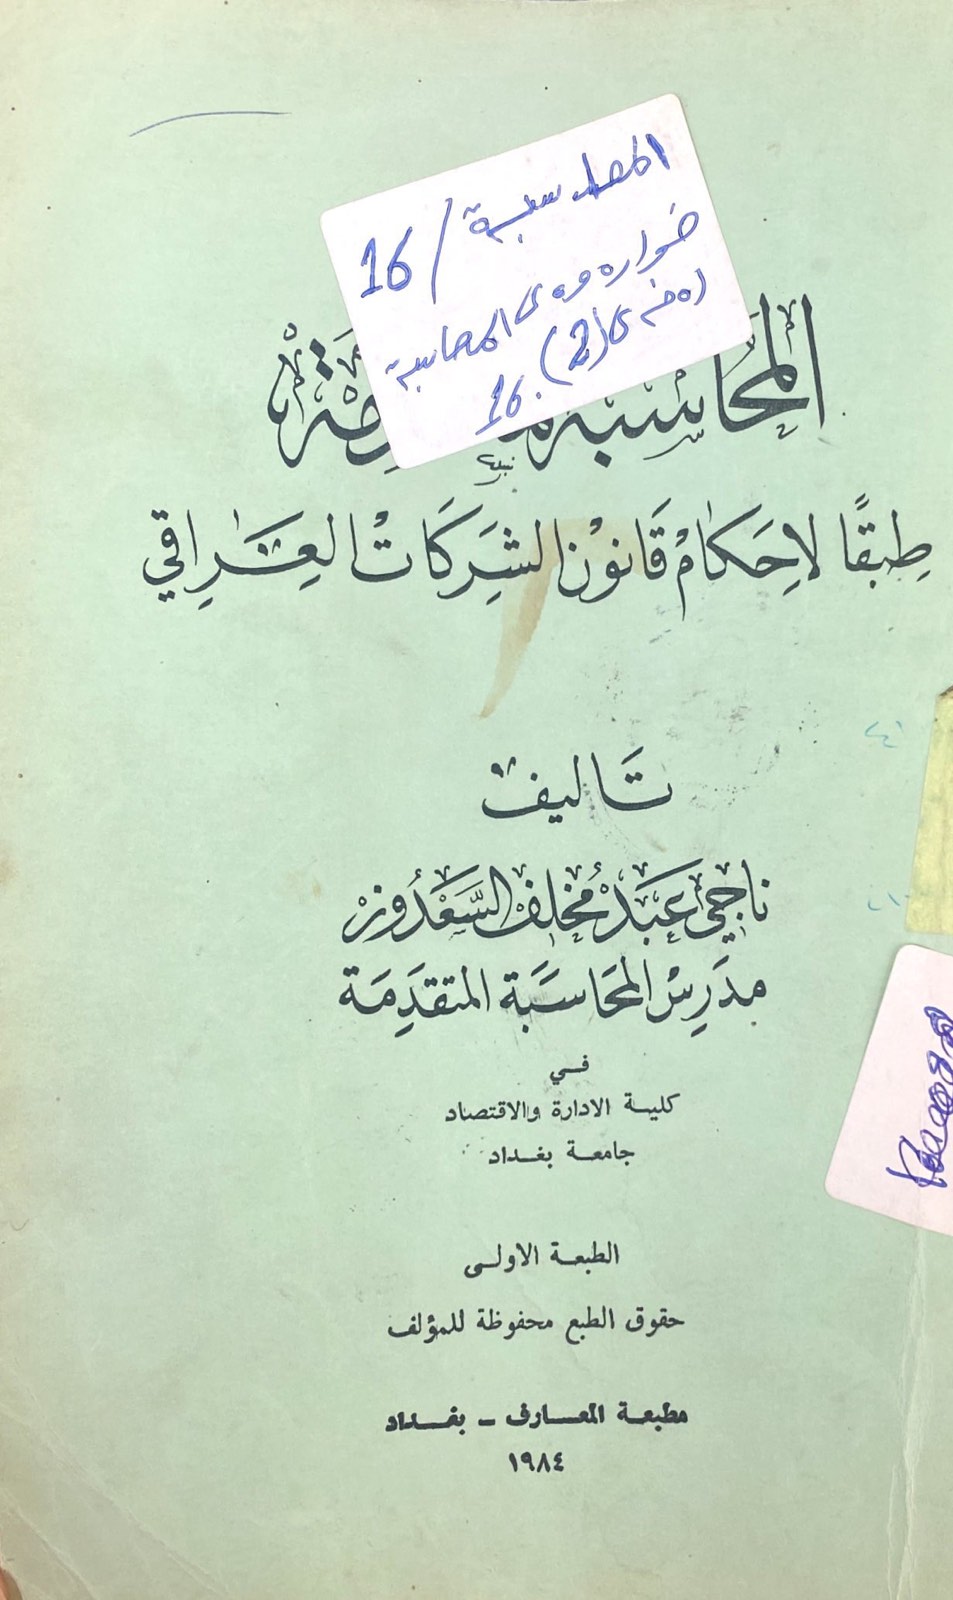 المحاسبة / 16
16. (2)
المحاسبة
طبقًا لاحكام قانون الشركات العراقي
تأليف
ناجي عبد مخلف السعدون
مدرس المحاسبة المتقدمة
في
كلية الادارة والاقتصاد
جامعة بغداد
الطبعة الاولى
حقوق الطبع محفوظة للمؤلف
مطبعة المعارف - بغداد
١٩٨٤